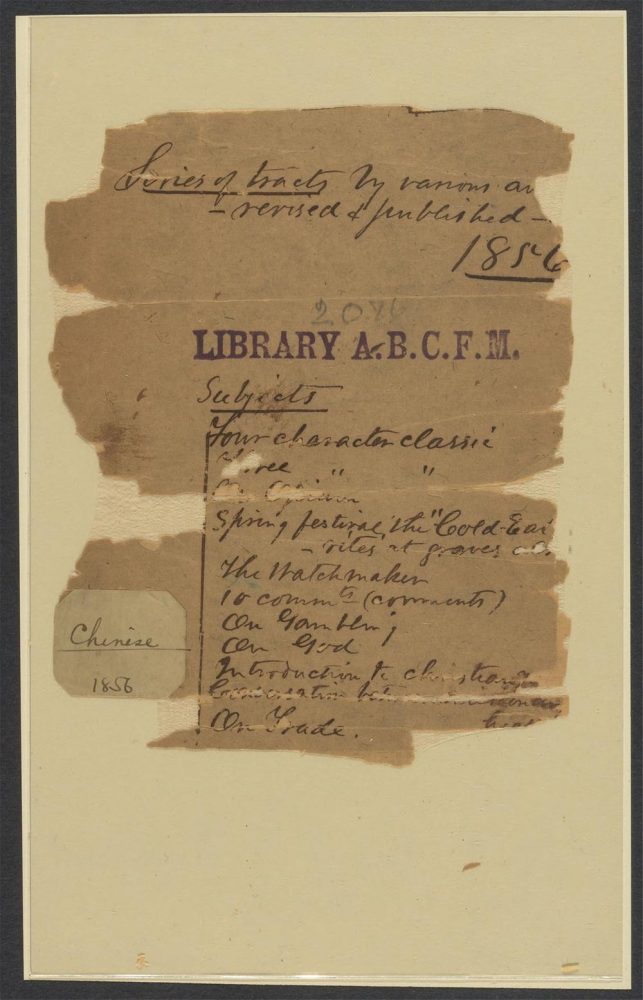 Series of tracts by various au
– revised & published –
1856
2076
LIBRARY A.B.C.F.M.
Subjects
Four character classic
Three " "
On Opium
Spring festival, the "Cold-Eat
– rites at graves &c.
The Watchmaker
10 commts (comments)
On Gambling
On God
Introduction to christian
Conversation betw
On Trade.
Chinese
1856